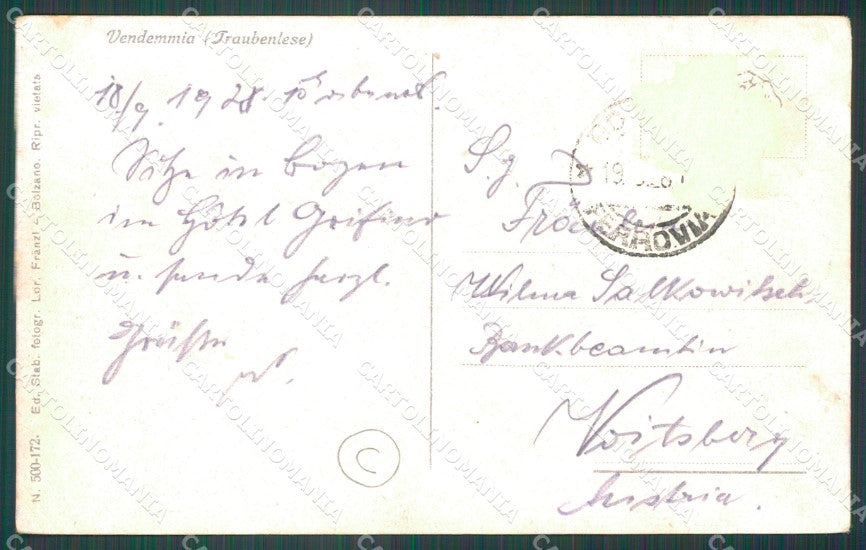 Vendemmia (Traubenlese)
18/9. 1928. 10h abends.
Sitze in Bozen
im Hôtel Grifone
u. sende herzl.
Grüsse
S. g.
Wilma Salkowitsch
Bankbeamtin
Voitsberg
Austria.
FERROVIA
N. 500-172. Ed. Stab. fotogr. Lor. Fränzl - Bolzano. Ripr. vietata
C
CARTOLINOMANIA